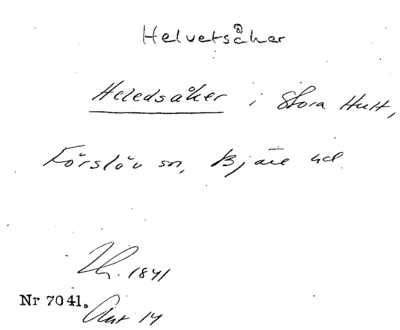 Helvetsåker
Heledsåker i Stora Hult,
Förslöv sn, Bjäre hd.
Lh. 1841
Nr 7041.
Akt 14